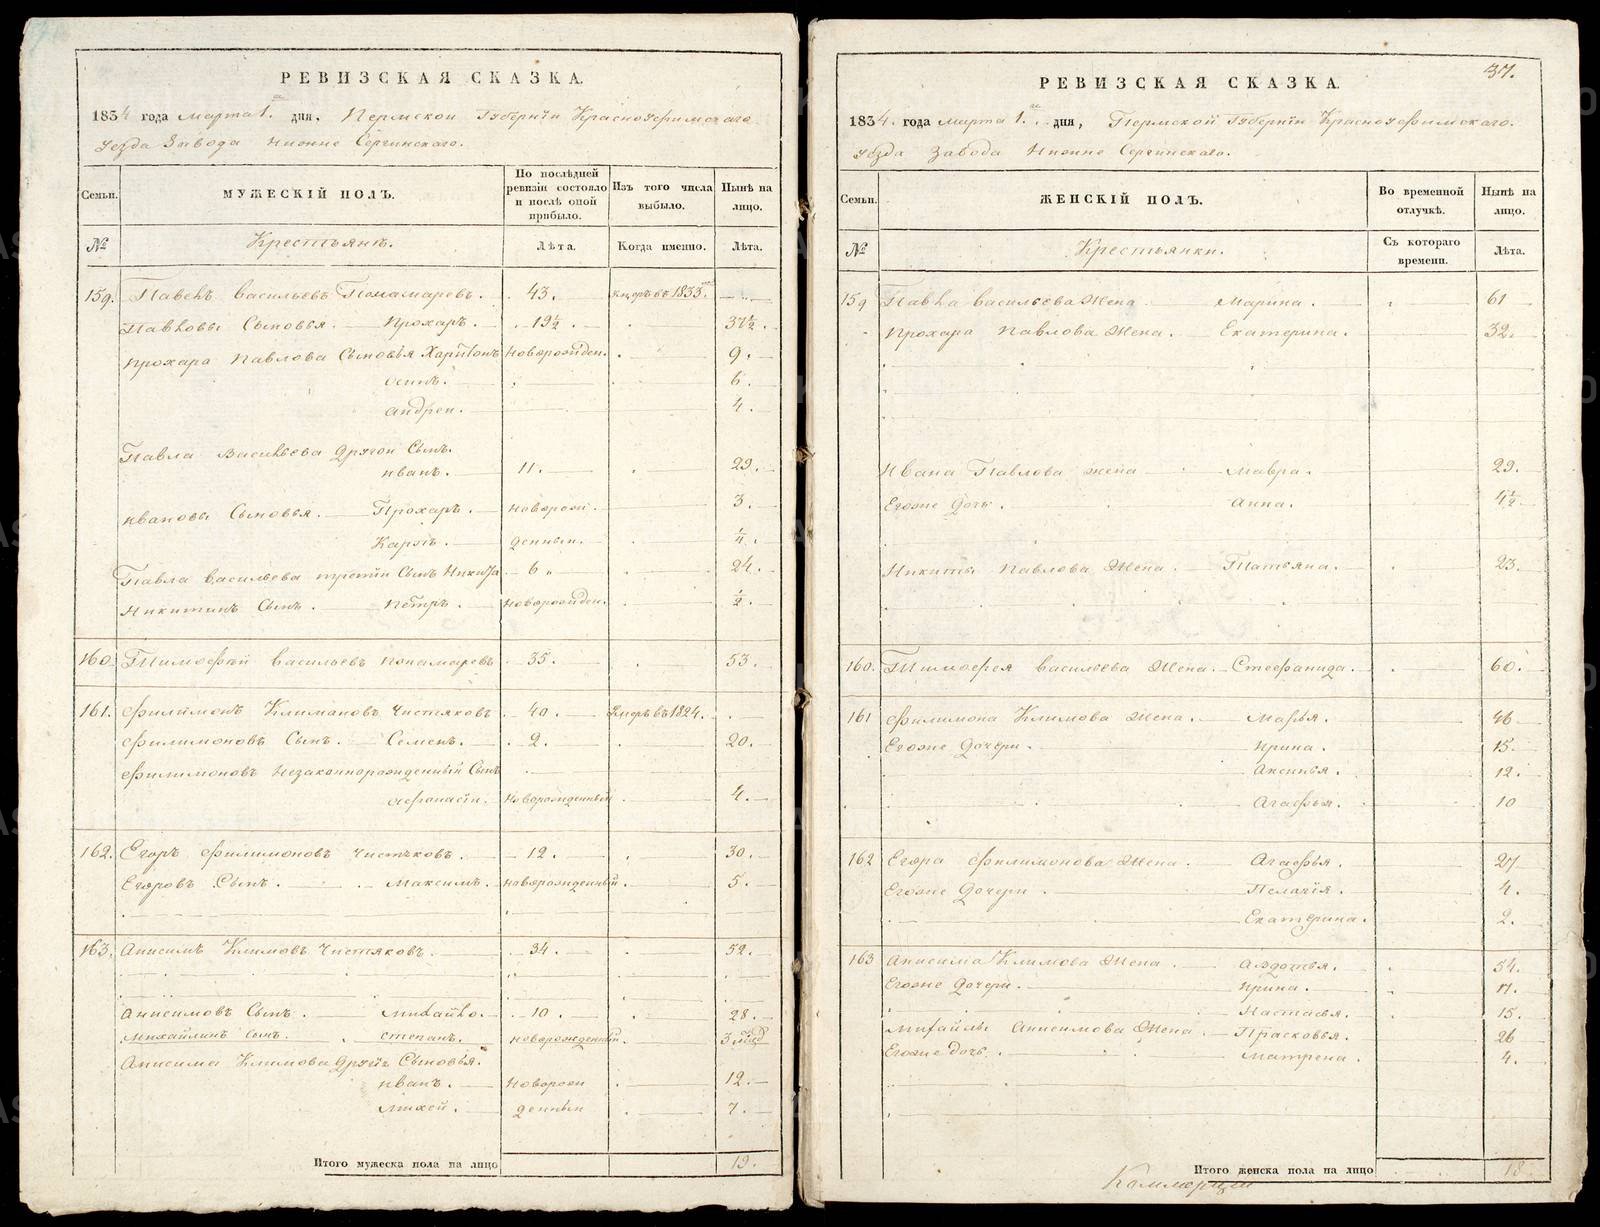 РЕВИЗСКАЯ СКАЗКА.
1834 года марта 1. дня, Пермской Губернiи Красноуфимскаго
уезда Завода Нижне Сергинскаго.
Семьи. МУЖЕСКIЙ ПОЛЪ. По послѣдней ревизiи состояло и послѣ оной прибыло. Изъ того числа выбыло. Нынѣ на лицо.
№ Крестьяне. Лѣта. Когда именно. Лѣта.
159. Павелъ Васильевъ Понамаревъ. 43. умеръ въ 1833.
Павловы Сыновья. Прохаръ. 19½. 37½.
Прохара Павлова Сыновья Харитонъ новорожден. 9.
осипъ. 6.
андреи. 4.
Павла Васильева другой Сынъ.
иванъ. 11. 29.
ивановы Сыновья. Прохаръ. новорож. 3.
Карпъ. денныи. ¼.
Павла васильева третiи Сынъ Никита 6 24.
Никитинъ Сынъ. Петръ. новорожден. ½.
160. Тимофѣй васильевъ понамаревъ 35. 53.
161. Филимонъ Климановъ Чистяковъ 40. Умеръ въ 1824.
Филимоновъ Сынъ. Семенъ. 2. 20.
Филимоновъ Незаконнорожденный Сынъ
афонасiи. Новорожденный 4.
162. Егоръ Филимоновъ Чистяковъ. 12. 30.
Егоровъ Сынъ. Максимъ. новорожденный. 5.
163. Анисимъ Климовъ Чистяковъ. 34. 52.
Анисимовъ Сынъ. Михайло. 10. 28.
Михайлинъ сынъ. степанъ. новорожденный. 3
Анисима Климова другiе Сыновья.
иванъ. Новорож 12.
михей. денныи 7.
Итого мужеска пола на лицо 19.
37.
РЕВИЗСКАЯ СКАЗКА.
1834. года марта 1. дня, Пермской Губернiи Красноуфимскаго.
уезда Завода Нижне Сергинскаго.
Семьи. ЖЕНСКIЙ ПОЛЪ. Во временной отлучкѣ. Нынѣ на лицо.
№ Крестьянки. Съ котораго времени. Лѣта.
159 Павла васильева Жена Марина. 61
Прохара Павлова Жена. Екатерина. 32.
Ивана Павлова жена Мавра. 29.
Егоже Дочь. Анна. 4½
Никиты Павлова Жена. Татьяна. 23.
160. Тимофея васильева Жена. Стефанида. 60.
161 Филимона Климова Жена. Марья. 46
Егоже Дочери. Ирина. 15.
Аксинья. 12.
Агафья. 10
162 Егора Филимонова Жена. Агафья. 27
Егоже Дочери Пелагiя. 4.
Екатерина. 2.
163 Анисима Климова Жена Авдотья. 54.
Егоже Дочери. Ирина. 17.
Настасья. 15.
Михайлы Анисимова Жена. Прасковья. 26
Егоже Дочь. Матрена. 4.
Итого женска пола на лицо 18